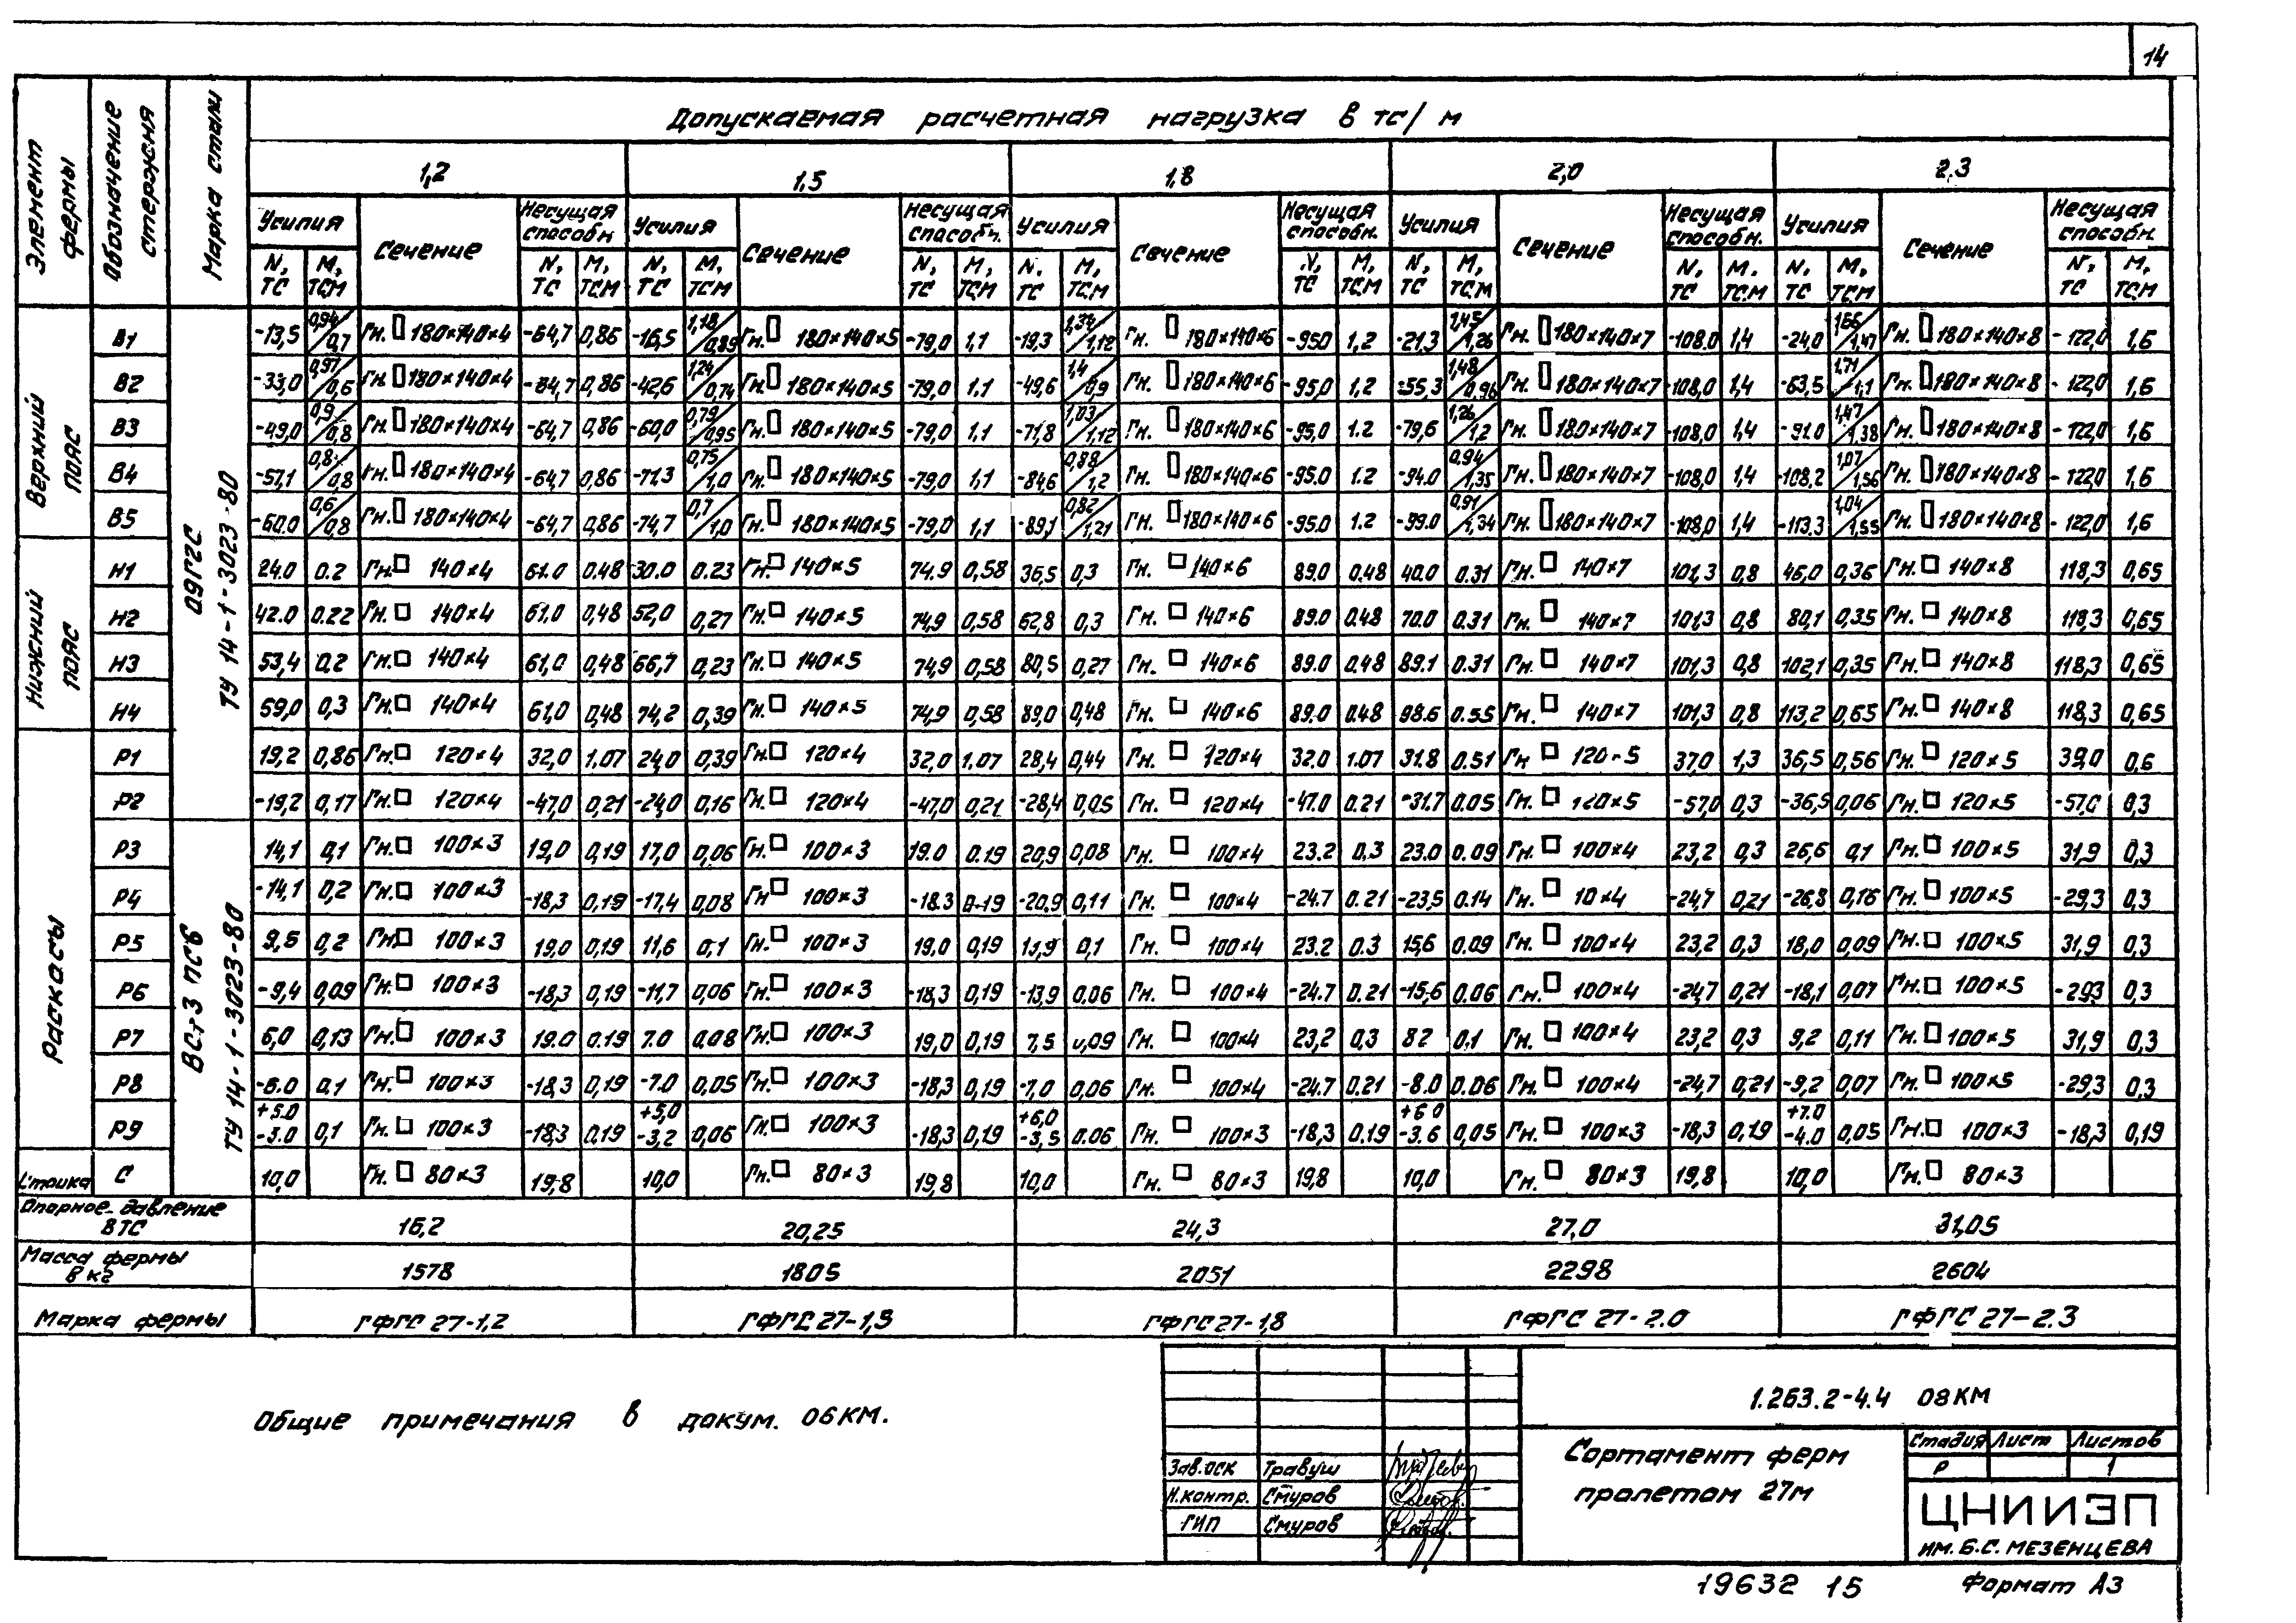 14
Допускаемая расчетная нагрузка в тс/м
Элемент фермы
Обозначение стержня
Марка стали
1,2 1,5 1,8 2,0 2.3
Усилия Сечение Несущая способн. Усилия Сечение Несущая способн. Усилия Сечение Несущая способн. Усилия Сечение Несущая способн. Усилия Сечение Несущая способн.
N, ТС М, ТСМ N, ТС М, ТСМ N, ТС М, ТСМ N, ТС М, ТСМ N, ТС М, ТСМ N, ТС М, ТСМ N, ТС М, ТСМ N, ТС М, ТСМ N, ТС М, ТСМ N, ТС М, ТСМ
Верхний пояс
Нижний пояс
Раскосы
Стойка
09Г2С ТУ 14-1-3023-80
ВСт3 ПС6 ТУ 14-1-3023-80
В1 -13,5 0,94/0,7 Гн. 180×140×4 -64,7 0,86 -16,5 1,18/0,89 Гн. 180×140×5 -79,0 1,1 -19,3 1,34/1,12 Гн. 180×140×6 -950 1,2 -21,3 1,45/1,26 Гн. 180×140×7 -108.0 1,4 -24,0 1,66/1,47 Гн. 180×140×8 -122,0 1,6
В2 -33,0 0,97/0,6 Гн. 180×140×4 -64,7 0,86 -42,6 1,24/0,74 Гн. 180×140×5 -79,0 1.1 -49,6 1,4/0,9 Гн. 180×140×6 -95,0 1.2 -55,3 1,48/0.96 Гн. 180×140×7 -108,0 1,4 -63,5 1,71/1,1 Гн. 180×140×8 -122,0 1,6
В3 -49,0 0,9/0,8 Гн. 180×140×4 -64,7 0,86 -60,0 0,79/0,95 Гн. 180×140×5 -79,0 1.1 -71,8 1,03/1,12 Гн. 180×140×6 -95,0 1.2 -79,6 1,26/1,2 Гн. 180×140×7 -108,0 1,4 -91.0 1,47/1,38 Гн. 180×140×8 -122,0 1,6
В4 -57,1 0,8/0,8 Гн. 180×140×4 -64,7 0,86 -71,3 0,75/1,0 Гн. 180×140×5 -79,0 1,1 -84,6 0,88/1,2 Гн. 180×140×6 -95.0 1.2 -94.0 0,94/1,35 Гн. 180×140×7 -108,0 1,4 -108,2 1,07/1,56 Гн. 180×140×8 -122,0 1,6
В5 -60.0 0,6/0,8 Гн. 180×140×4 -64,7 0,86 -74,7 0,7/1,0 Гн. 180×140×5 -79,0 1,1 -89,1 0,82/1,21 Гн. 180×140×6 -95.0 1.2 -99.0 0,91/1,34 Гн. 180×140×7 -108,0 1,4 -113.3 1,04/1,55 Гн. 180×140×8 -122,0 1,6
Н1 24.0 0.2 Гн. 140×4 61.0 0,48 30.0 0.23 Гн. 140×5 74.9 0,58 36,5 0,3 Гн. 140×6 89.0 0.48 40.0 0.31 Гн. 140×7 101,3 0,8 46,0 0,36 Гн. 140×8 118,3 0,65
Н2 42.0 0.22 Гн. 140×4 61.0 0,48 52,0 0,27 Гн. 140×5 74,9 0,58 62,8 0,3 Гн. 140×6 89.0 0.48 70.0 0.31 Гн. 140×7 101,3 0,8 80,1 0,35 Гн. 140×8 118,3 0,65
Н3 53,4 0,2 Гн. 140×4 61,0 0,48 66,7 0,23 Гн. 140×5 74,9 0,58 80,5 0,27 Гн. 140×6 89.0 0.48 89.1 0.31 Гн. 140×7 101,3 0,8 102,1 0,35 Гн. 140×8 118,3 0,65
Н4 59,0 0,3 Гн. 140×4 61,0 0,48 74,2 0,39 Гн. 140×5 74,9 0,58 89,0 0,48 Гн. 140×6 89.0 0.48 98.6 0.55 Гн. 140×7 101,3 0,8 113,2 0,65 Гн. 140×8 118,3 0,65
Р1 19,2 0,86 Гн. 120×4 32,0 1.07 24,0 0,39 Гн. 120×4 32,0 1.07 28,4 0,44 Гн. 120×4 32.0 1.07 31.8 0.51 Гн 120×5 37,0 1,3 36,5 0,56 Гн. 120×5 39,0 0,6
Р2 -19,2 0,17 Гн. 120×4 -47,0 0,21 -24,0 0,16 Гн. 120×4 -47,0 0,21 -28,4 0,05 Гн. 120×4 -47.0 0.21 -31.7 0.05 Гн. 120×5 -57,0 0,3 -36,5 0,06 Гн. 120×5 -57,0 0,3
Р3 14,1 0,1 Гн. 100×3 19,0 0,19 17,0 0,06 Гн. 100×3 19.0 0.19 20,9 0,08 Гн. 100×4 23.2 0,3 23.0 0.09 Гн. 100×4 23,2 0,3 26,6 0,1 Гн. 100×5 31,9 0,3
Р4 -14,1 0,2 Гн. 100×3 -18,3 0,19 -17,4 0,08 Гн 100×3 -18.3 0,19 -20.9 0,11 Гн. 100×4 -24.7 0.21 -23,5 0.14 Гн. 10×4 -24,7 0,21 -26,8 0,16 Гн. 100×5 -29,3 0,3
Р5 9,5 0,2 Гн. 100×3 19.0 0.19 11,6 0,1 Гн. 100×3 19.0 0,19 13,9 0,1 Гн. 100×4 23.2 0.3 15,6 0.09 Гн. 100×4 23,2 0,3 18,0 0,09 Гн. 100×5 31,9 0,3
Р6 -9,4 0,09 Гн. 100×3 -18,3 0,19 -11,7 0,06 Гн. 100×3 -18,3 0,19 -13,9 0,06 Гн. 100×4 -24.7 0.21 -15,6 0.06 Гн. 100×4 -24,7 0,21 -18,1 0,07 Гн. 100×5 -293 0,3
Р7 6,0 0,13 Гн. 100×3 19.0 0.19 7.0 0,08 Гн. 100×3 19,0 0,19 7,5 0,09 Гн. 100×4 23,2 0,3 82 0,1 Гн. 100×4 23,2 0,3 9,2 0,11 Гн. 100×5 31,9 0,3
Р8 -6.0 0,1 Гн. 100×3 -18,3 0,19 -7.0 0,05 Гн. 100×3 -18,3 0,19 -7,0 0,06 Гн. 100×4 -24.7 0.21 -8.0 0.06 Гн. 100×4 -24,7 0,21 -9,2 0,07 Гн. 100×5 -29,3 0,3
+5.0 +5,0 +6,0 +6 0 +7.0
Р9 -3.0 0,1 Гн. 100×3 -18,3 0.19 -3,2 0,06 Гн. 100×3 -18,3 0,19 -3,5 0.06 Гн. 100×3 -18,3 0.19 -3.6 0,05 Гн. 100×3 -18,3 0,19 -4.0 0,05 Гн. 100×3 -18,3 0,19
С 10,0 Гн. 80×3 19,8 10,0 Гн. 80×3 19,8 10,0 Гн. 80×3 19,8 10,0 Гн. 80×3 19,8 10,0 Гн. 80×3
Опорное давление в ТС 16,2 20,25 24,3 27,0 31,05
Масса фермы в кг 1578 1805 2051 2298 2604
Марка фермы ГФГС 27-1,2 ГФГС 27-1,5 ГФГС 27-1,8 ГФГС 27-2.0 ГФГС 27-2.3
Общие примечания в докум. 06КМ.
1.263.2-4.4 08КМ
Сортамент ферм
пролетом 27м
Стадия Лист Листов
Р 1
Зав.ОСК Травуш
Н.контр. Смуров
ГИП Смуров
ЦНИИЭП
им. Б.С. МЕЗЕНЦЕВА
19632 15
Формат А3